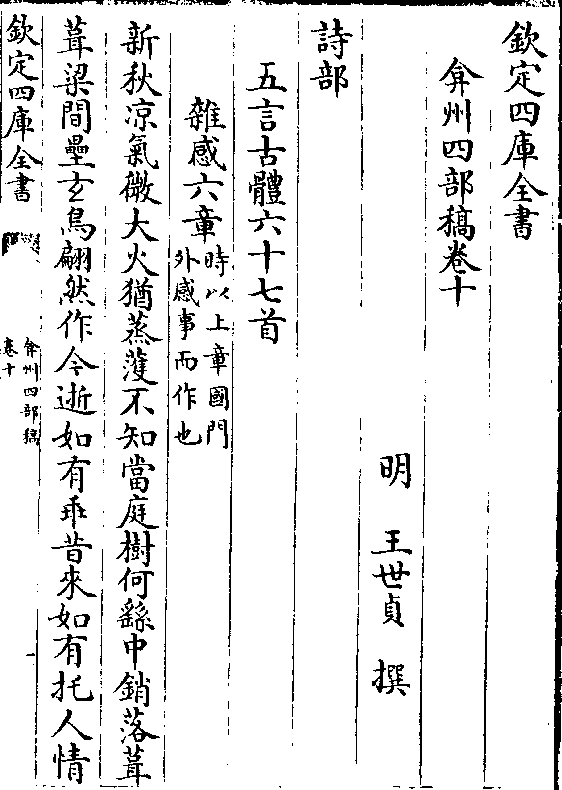 欽定四庫全書
弇州四部稿卷十
明 王世貞 撰
詩部
五言古體六十七首
雜感六章時以上章國門外感事而作也
新秋凉氣微大火猶蒸濩不知當庭樹何繇中銷落葺
葺梁間壘玄鳥翩然作今逝如有乖昔來如有托人情
欽定四庫全書
弇州四部稿
卷十
一